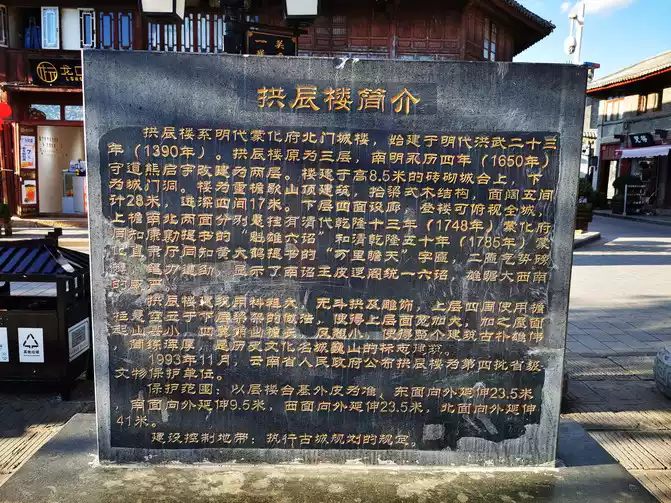 拱辰楼简介
拱辰楼系明代蒙化府北门城楼，始建于明代洪武二十三
年（1390年）。拱辰楼原为三层，南明永历四年（1650年）
守道熊启宇改建为两层。楼建于高8.5米的砖砌城台上，下
为城门洞。楼为重檐歇山顶建筑，抬梁式木结构，面阔五间
计28米，进深四间17米。下层四面设廊，登楼可俯视全城，
上檐南北两面分别悬挂有清代乾隆十三年（1748年）蒙化府
同知康勷提书的“魁雄六诏”和清乾隆五十年（1785年）蒙
化直隶厅同知黄大鹤提书的“万里瞻天”字匾，二匾气势磅
显示了南诏王皮逻阁统一六诏，雄瞻大西南
拱辰楼建筑用料粗大，无斗拱及雕饰，上层四周使用檐
使得上层面宽加大，加之屋面
使得整个建筑古朴雄伟
是历史文化名城巍山的标志建筑。
1993年11月，云南省人民政府公布拱辰楼为第四批省级
文物保护单位。
保护范围：以层楼台基外皮为准，东面向外延伸23.5米
，南面向外延伸9.5米，西面向外延伸23.5米，北面向外延伸
41米。
建设控制地带：执行古城规划的规定。